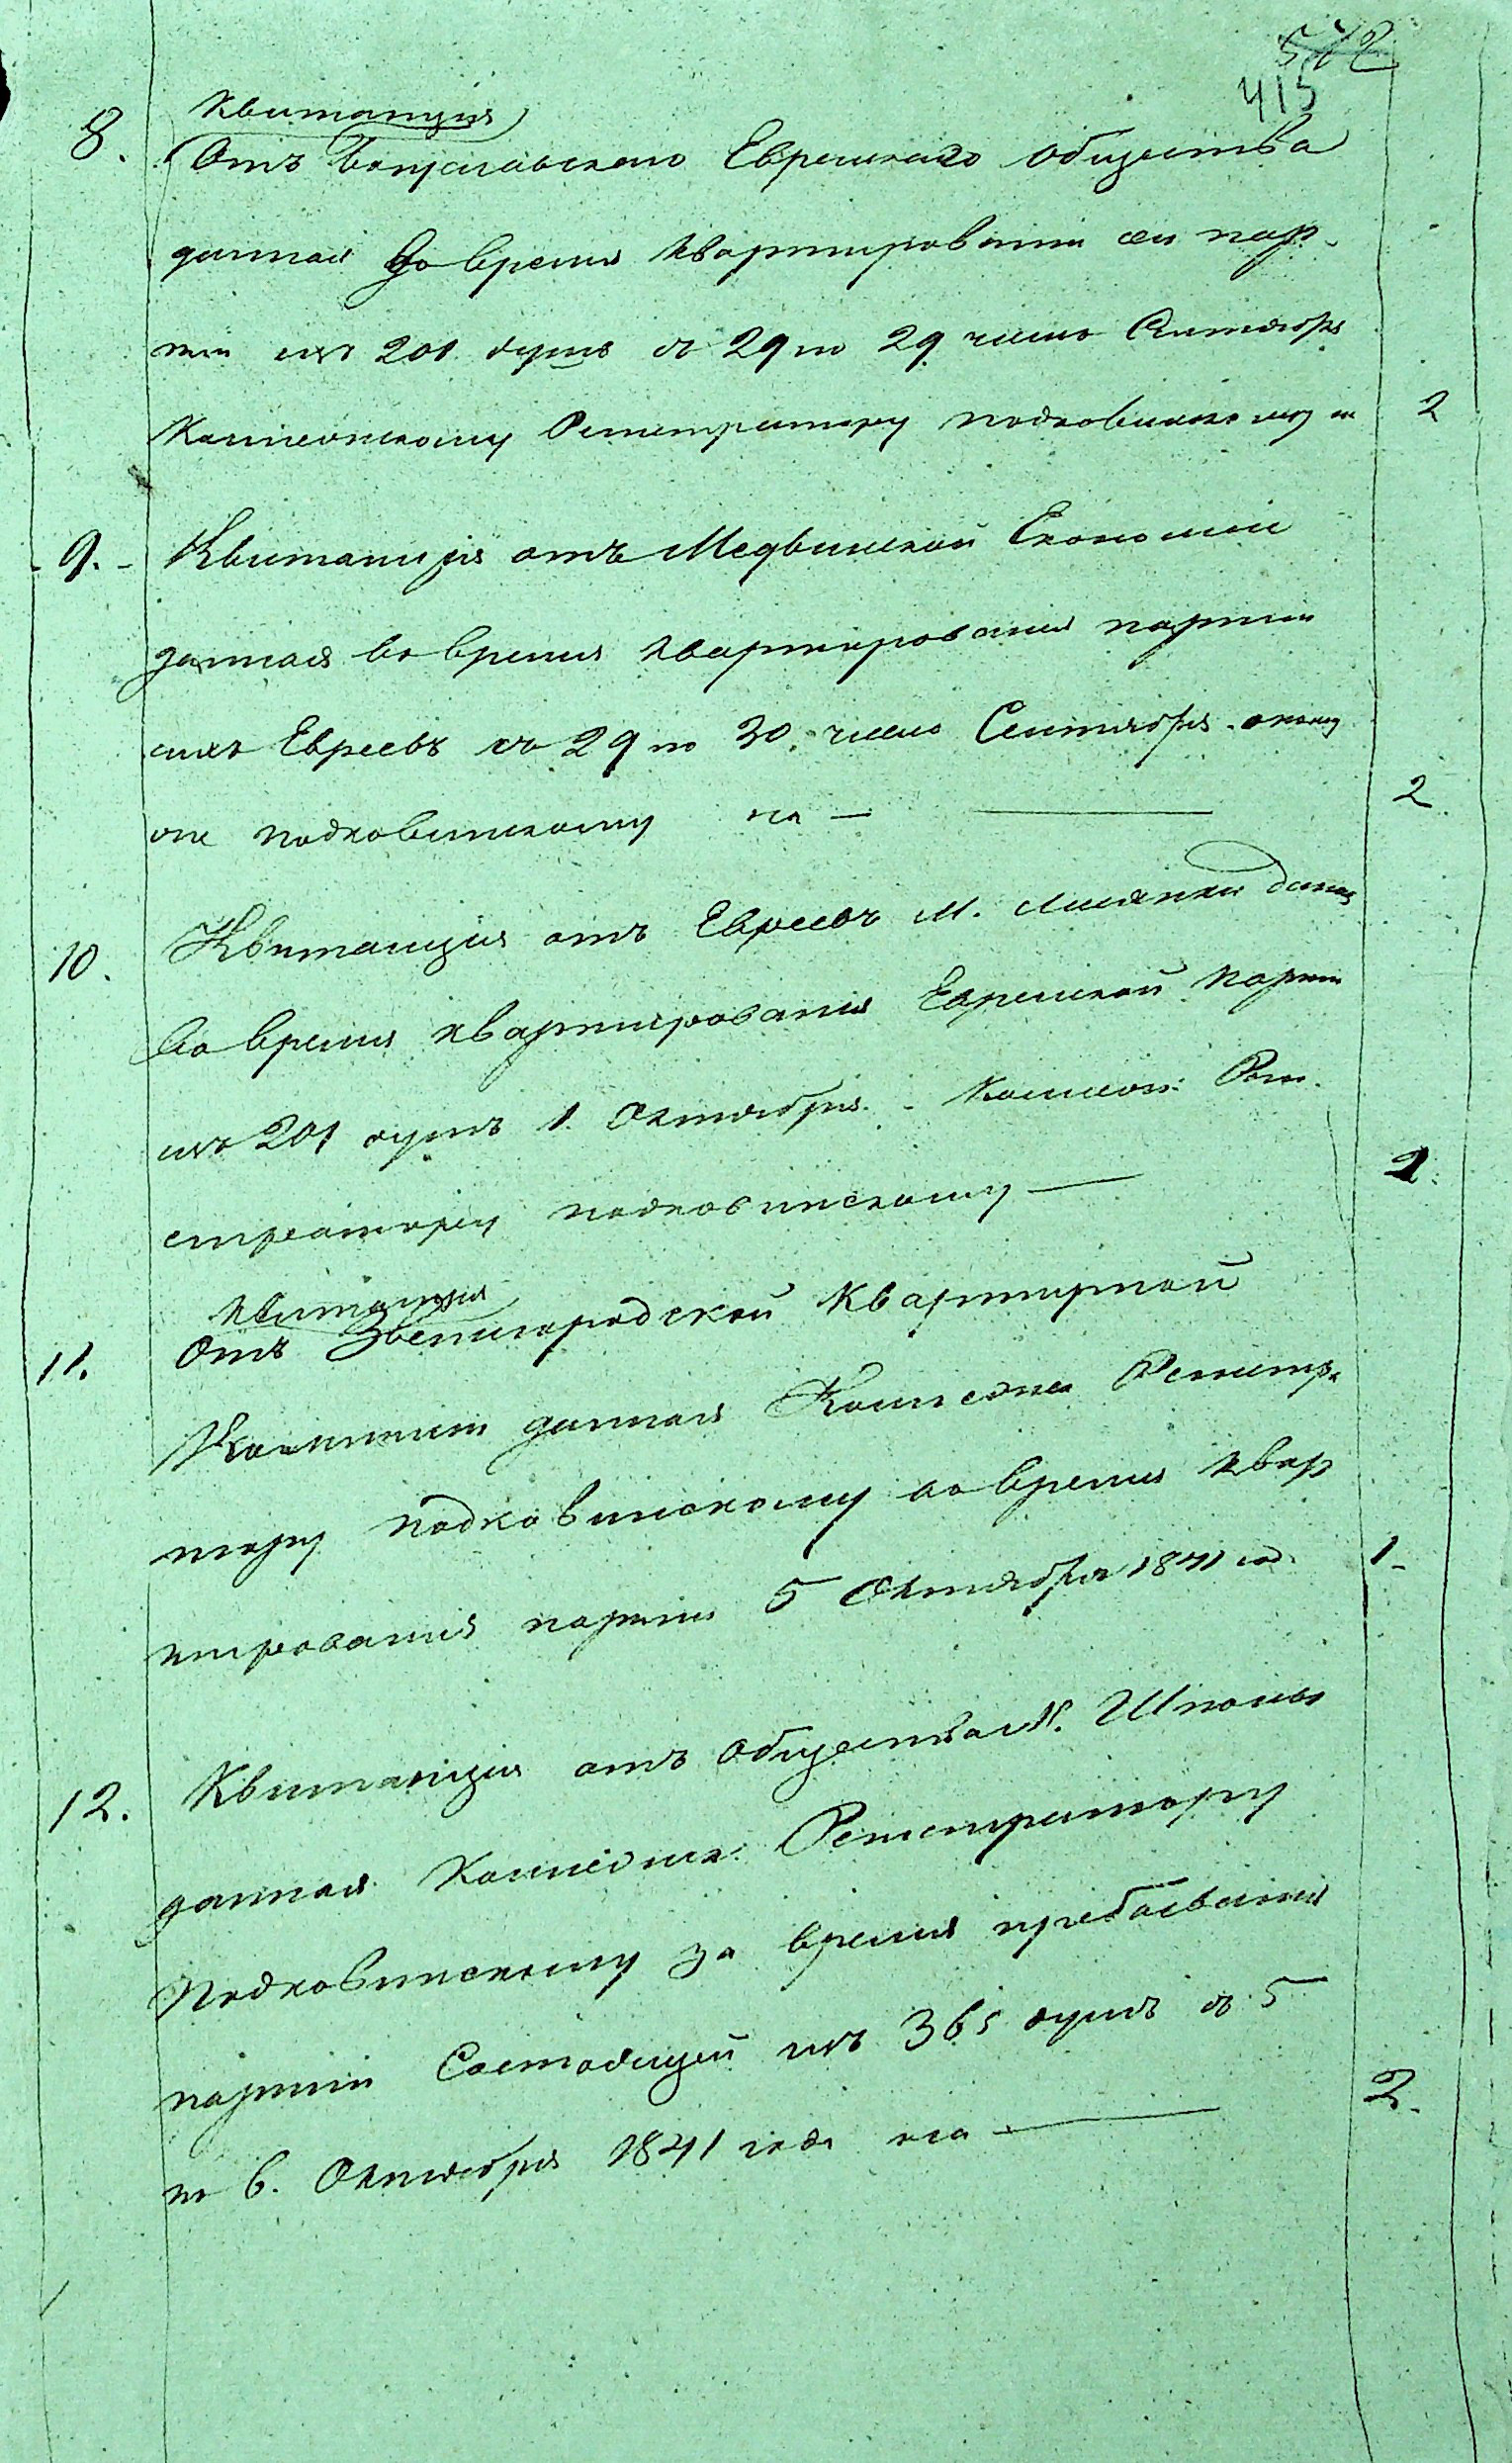 542
415
Квитанция
8. Отъ Богуславскаго Еврейскаго общества
данная во время квартированія сей пар-
тіи изъ 201 душъ съ 29 по 29 число Сентября
Коллежскому Регистратору Подковинскому на 2
9. Квитанція отъ Медвинской Економіи
данная во время квартированія партіи
сихъ Евреевъ съ 29 по 30 число Сентября оному
же Подковинскому на — 2
10. Квитанция отъ Евреевъ М. Лисянки данная
во время квартированія Еврейской партіи
изъ 201 душъ 1 Октября Коллеж: Реги-
стратору Подковинскому — 2.
Квитанция
11. Отъ Звенигородской Квартирной
Коммисіи данная Коллежск. Регистра
тору Подковинскому во время квар
тированія партіи 5 Октября 1841 год. 1
12. Квитанция отъ общества М. Шполы
данная Коллежск. Регистратору
Подковинскому за время пребыванія
партіи Состоящей изъ 365 душъ съ 5
по 6. Октября 1841 года на — 2.